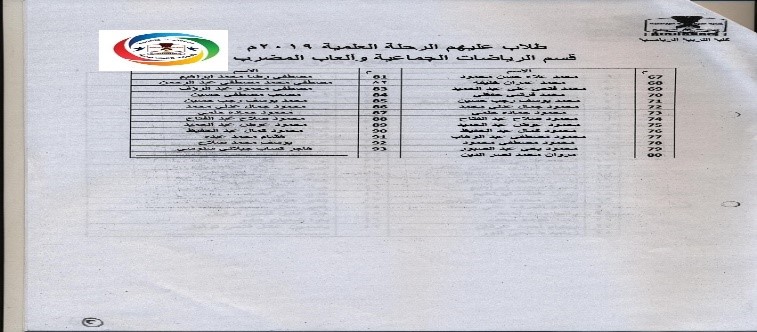 كلية التربية الرياضية
طلاب عليهم الرحلة العلمية ٢٠١٩م
قسم الرياضات الجماعية وألعاب المضرب
م الاسم م الاسم
67 محمد علاء حسن محمود 81 مصطفى رضا محمد ابراهيم
68 محمد عمران خليفة 82 مصطفى محمد مصطفى عبد الرحمن
69 محمد فتحي على عبد الحميد 83 مصطفى محمود عبد الرؤف
70 محمد قرشي حنفي 84 مصعب مصطفى حسين
71 محمد يوسف رجب حسين 85 محمد يوسف رجب حسين
72 محمود جمال على محمد 86 محمود جمال على محمد
73 محمود حماده حلمي 87 محمود حماده حلمي
محمود صلاح عبد الفتاح 88 محمود صلاح عبد الفتاح
75 محمود عوض عبد الحميد 89 محمود عوض عبد الحميد
76 محمود كمال عبد الحفيظ 90 محمود كمال عبد الحفيظ
محمود مصطفى عبد الوهاب 91 هشام محمد
78 محمود مصطفى محمود 92 يوسف محمد صلاح
79 محمود يحى عبد الصبور 93 هاجر
80 مروان محمد نصر الدين